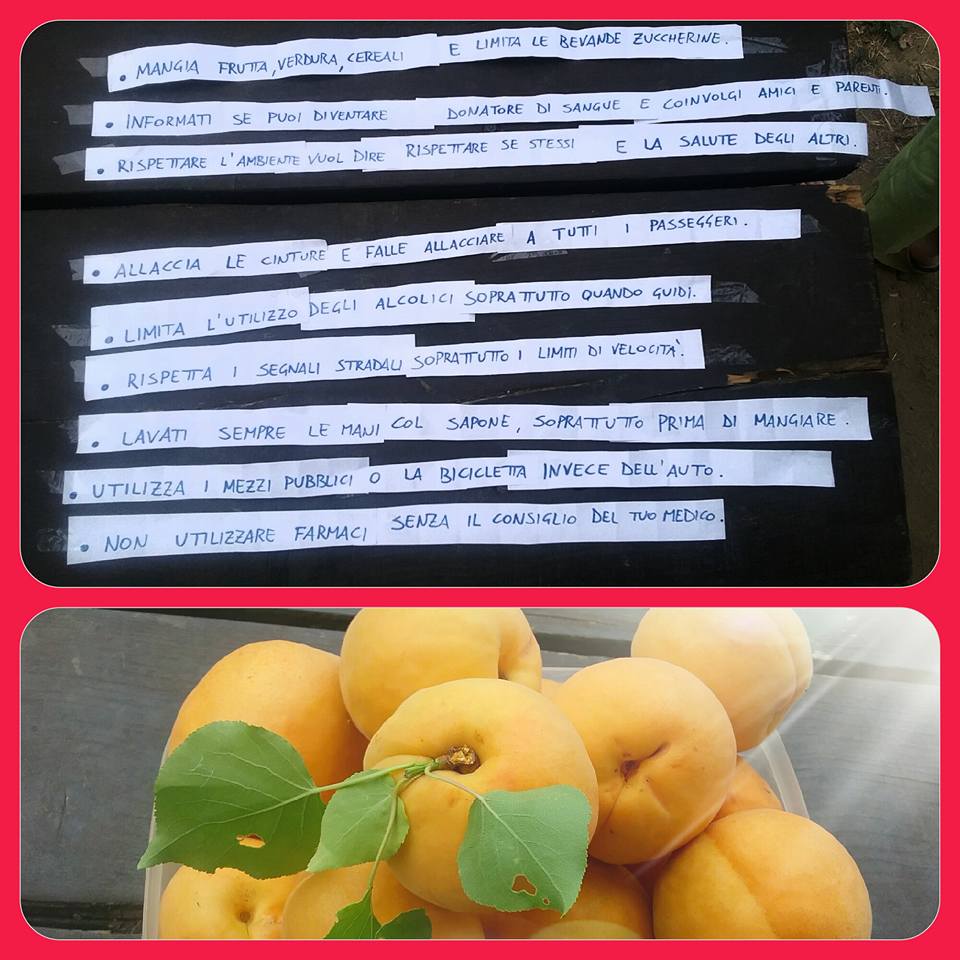 • MANGIA FRUTTA, VERDURA, CEREALI E LIMITA LE BEVANDE ZUCCHERINE.
• INFORMATI SE PUOI DIVENTARE DONATORE DI SANGUE E COINVOLGI AMICI E PARENTI.
• RISPETTARE L'AMBIENTE VUOL DIRE RISPETTARE SE STESSI E LA SALUTE DEGLI ALTRI.
• ALLACCIA LE CINTURE E FALLE ALLACCIARE A TUTTI I PASSEGGERI.
• LIMITA L'UTILIZZO DEGLI ALCOLICI SOPRATTUTTO QUANDO GUIDI.
• RISPETTA I SEGNALI STRADALI SOPRATTUTTO I LIMITI DI VELOCITÀ.
• LAVATI SEMPRE LE MANI COL SAPONE, SOPRATTUTTO PRIMA DI MANGIARE.
• UTILIZZA I MEZZI PUBBLICI O LA BICICLETTA INVECE DELL'AUTO.
• NON UTILIZZARE FARMACI SENZA IL CONSIGLIO DEL TUO MEDICO.